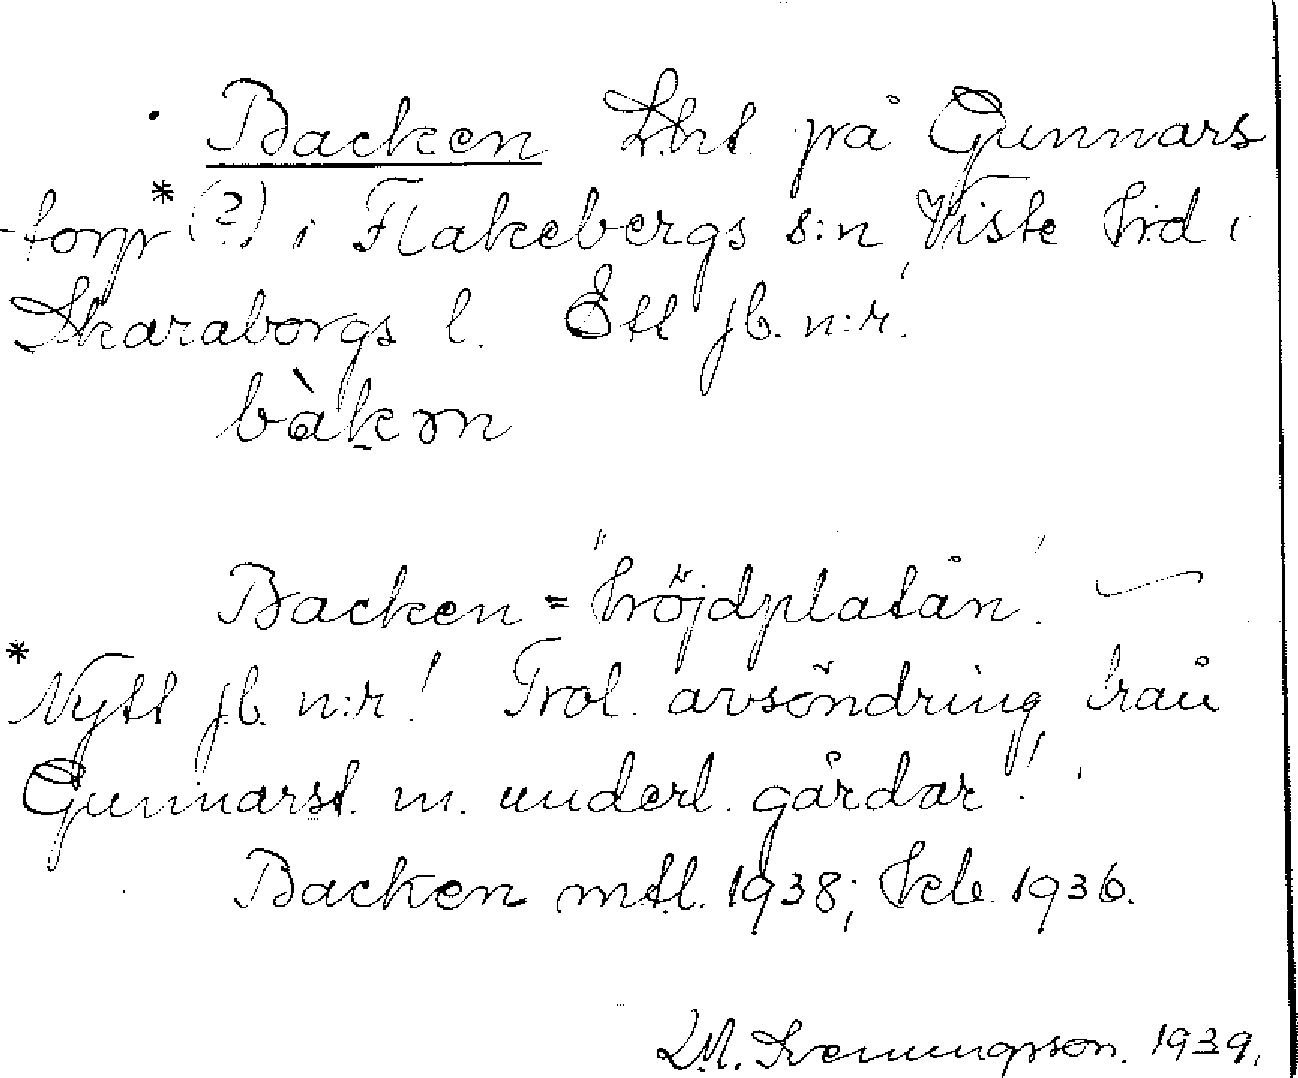 Backen Lht på Gunnars
-torp*(?) i Flakebergs s:n Viste hd i
Skaraborgs l. Ett jb. n:r.
bàkən
Backen = "höjdplatån".
*Nytt jb. n:r! Trol. avsöndring från
Gunnarst. m. underl. gårdar!
Backen mtl. 1938; kb. 1936.
1939.